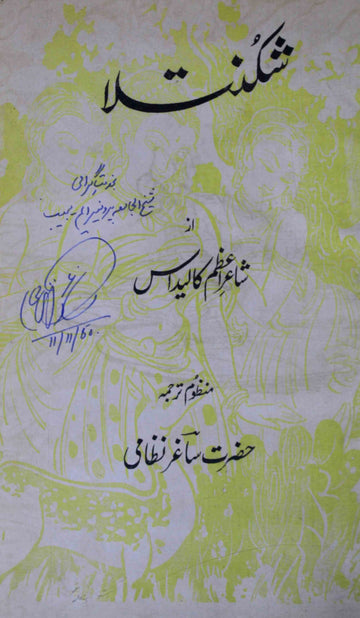 شکنتلا
بخدمت گرامی
شیخ الجامعہ پروفیسر ایم۔ مجیب
از
شاعرِ اعظم کالیداس
11/11/60
منظوم ترجمہ
حضرتِ ساغر نظامی